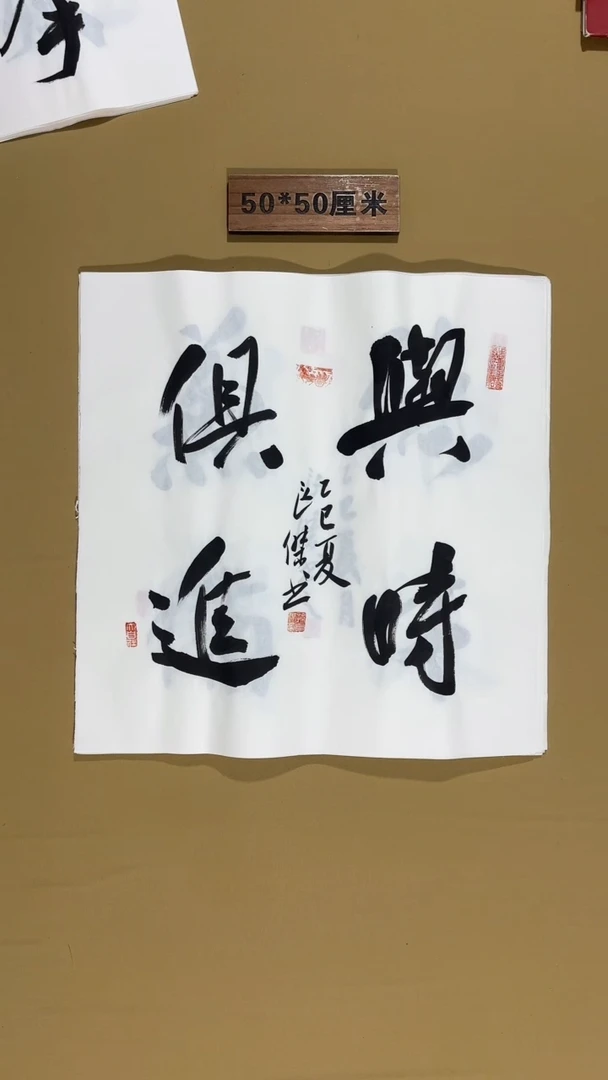 50*50厘米
與時
俱進
乙巳夏
傑书